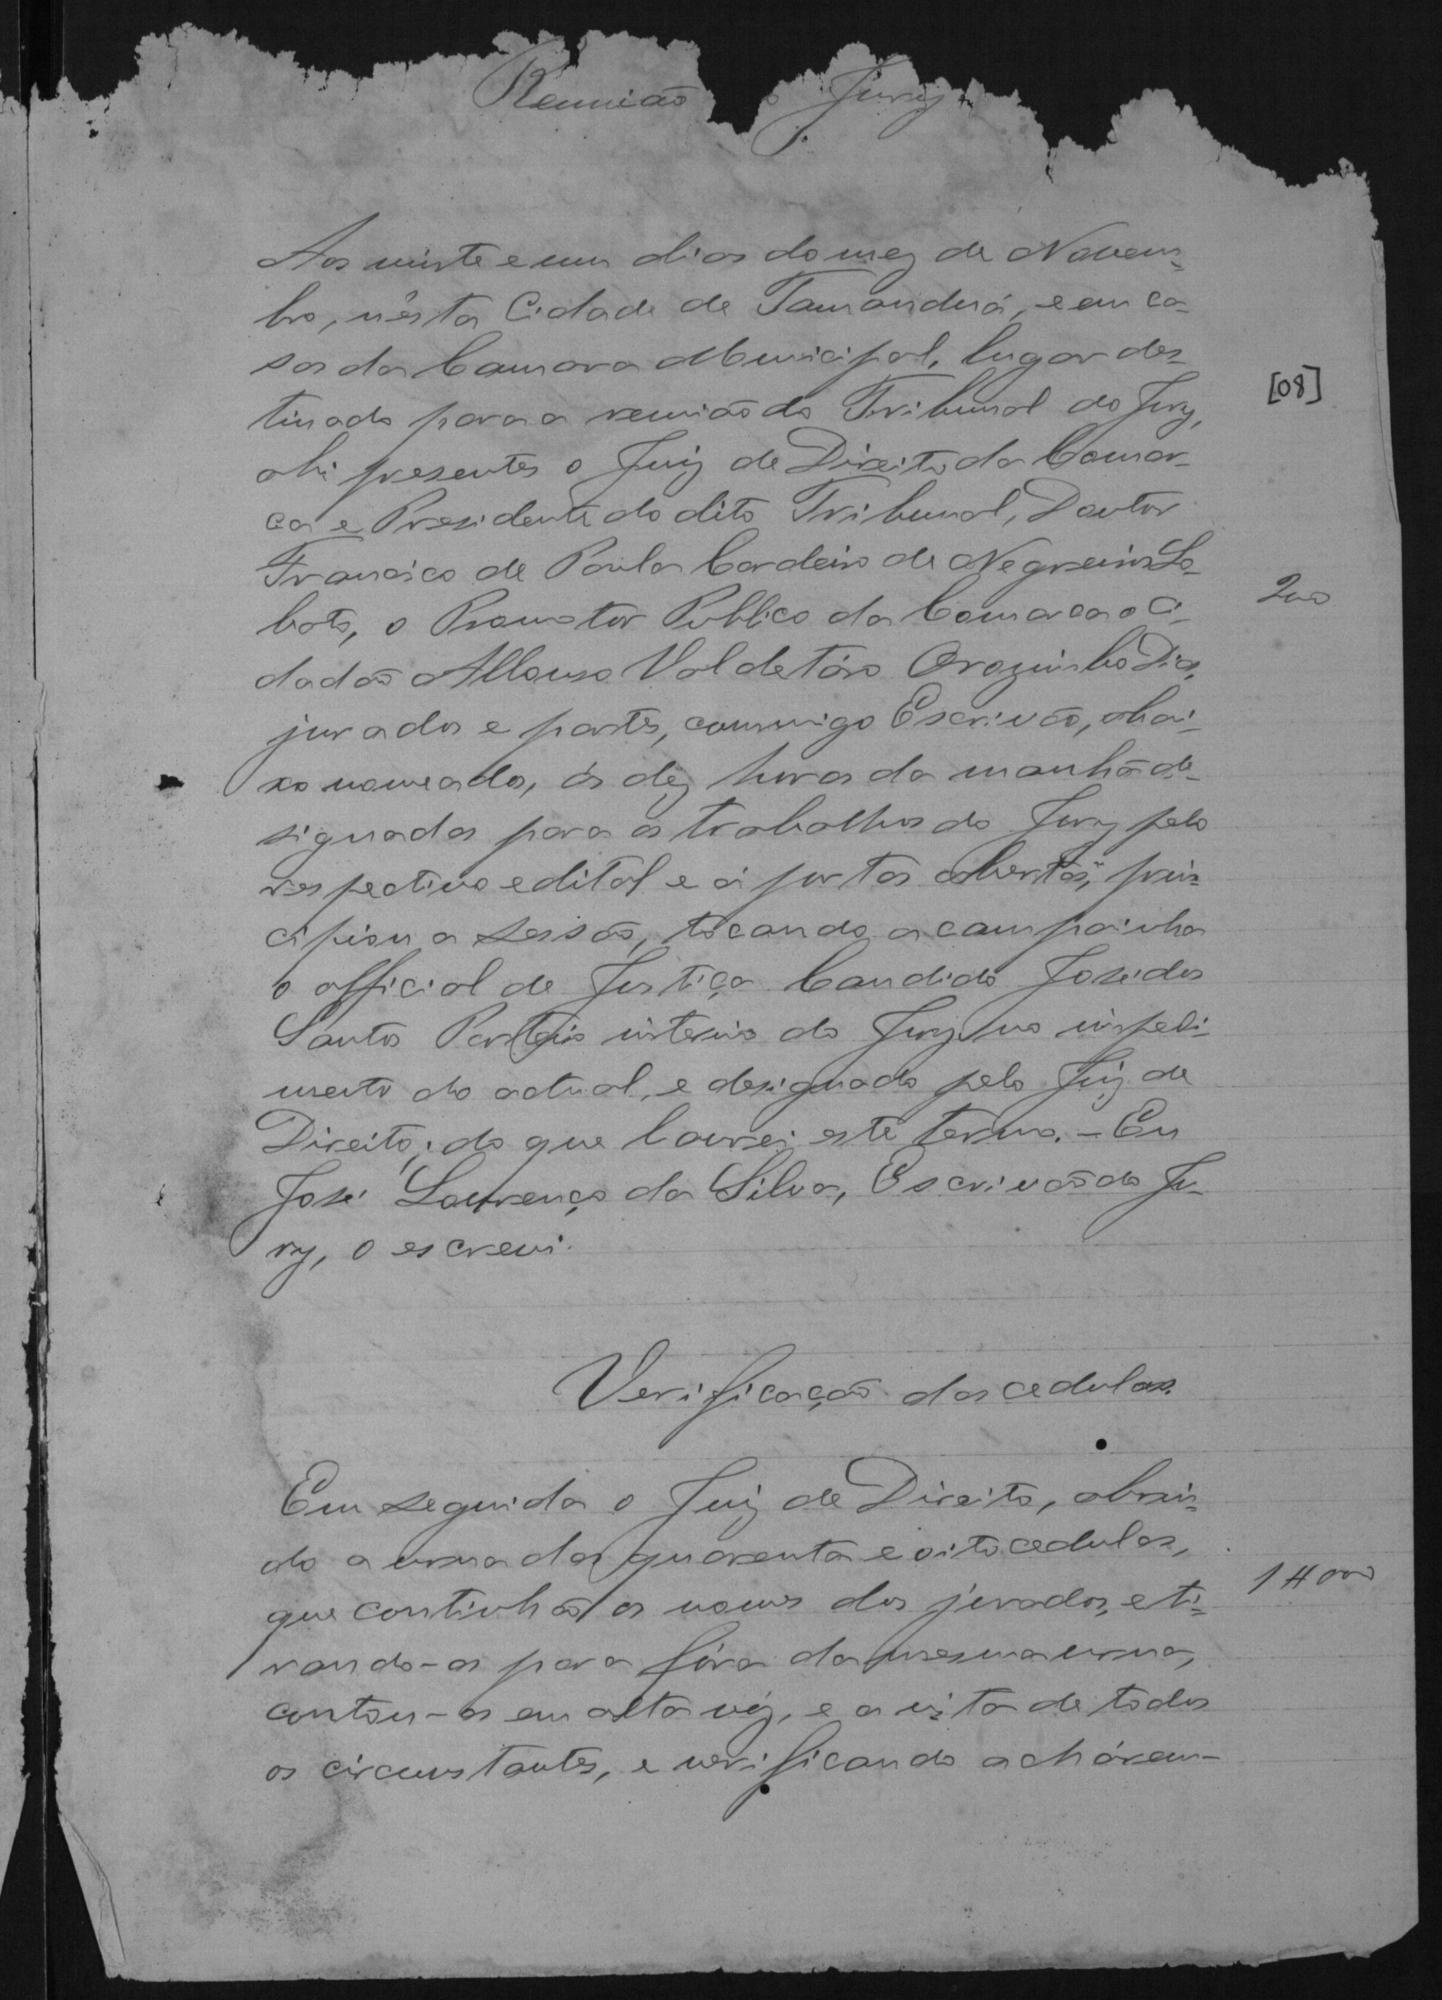 Reunião do Jury.
Aos vinte e um dias do mez de Novem-
bro, n'ésta Cidade de Tamanduá, e em ca-
sas da Camara Municipal, lugar des-
tinado para a reunião do Tribunal do Jury,
[08]
ahi presentes o Juiz de Direito da Comar-
ca e Presidente do dito Tribunal, Doutor
Francisco de Paula Cordeiro de Negreiros Lo-
bato, o Promotor Publico da Comarca o Ci-
200
dadão Affonso Valdetáro Orozimbo Dias,
jurados e partes, commigo Escrivão, abai-
xo nomeado, ás dez horas da manhã de-
signadas para os trabalhos do Jury pelo
respectivo edital e á portas abertas, prin-
cipiou a sessão, tocando a campainha
o official de Justiça Candido José dos
Santos Porteiro interino do Jury no impedi-
mento do actual, e designado pelo Juiz de
Direito; do que lavrei este termo. – Eu
José Lourenço da Silva, Escrivão do Ju-
ry, o escrevi.
Verificação das cedulas.
Em seguida o Juiz de Direito, abrin-
do a urna das quarenta e oito cedulas,
que continhão os nomes dos jurados, e ti-
1#000
rando-as para fóra da mesma urna,
contou-as em alta vóz, e a vista de todos
os circunstantes, e verificando achárem-